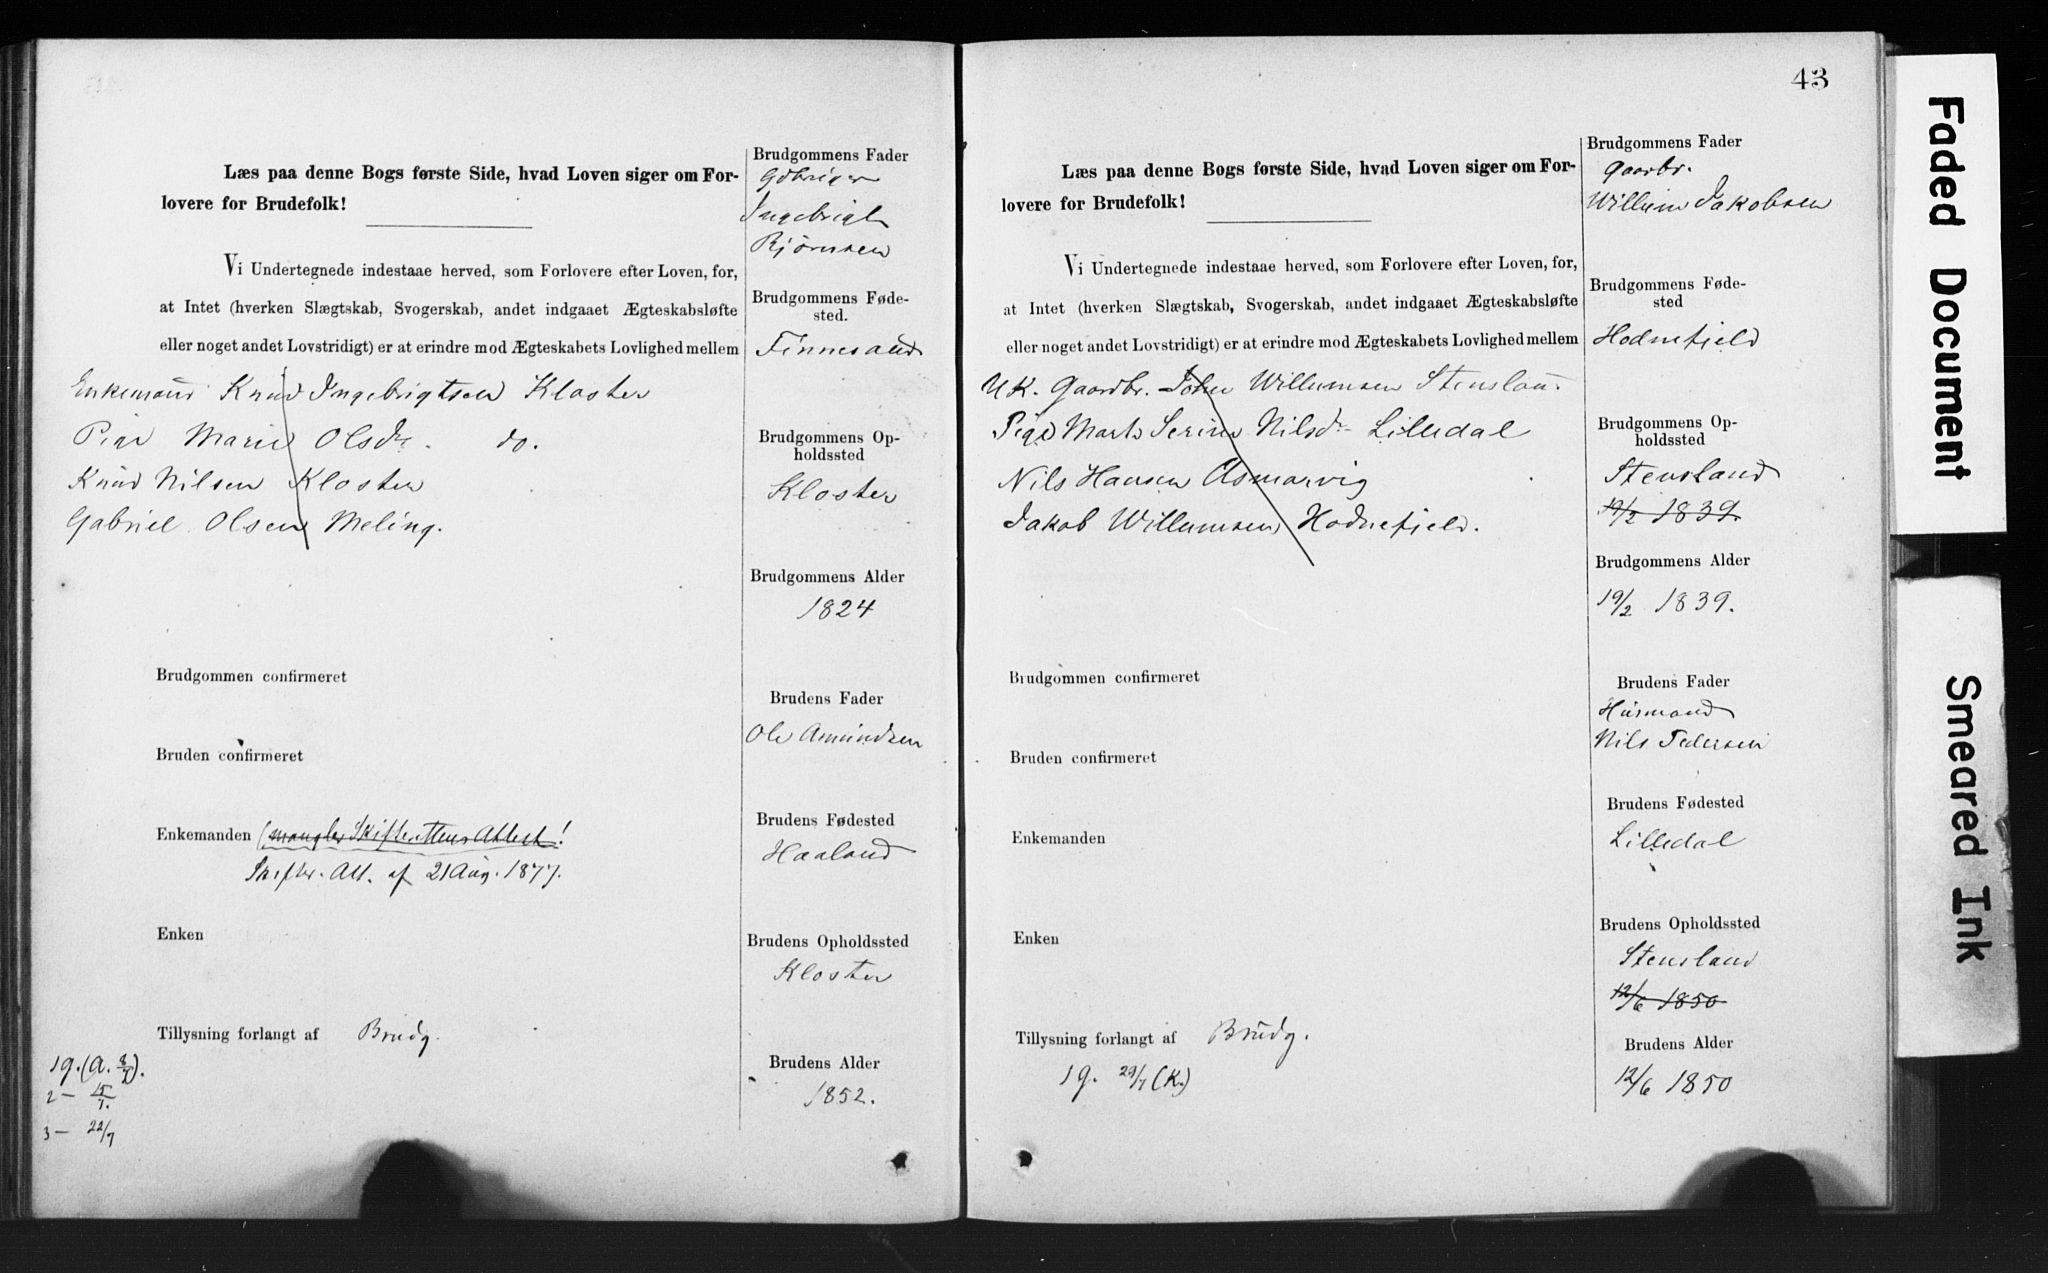 Læs paa denne Bogs første Side, hvad Loven siger om For-
lovere for Brudefolk!
Vi Undertegnede indestaae herved, som Forlovere efter Loven, for,
at Intet (hverken Slægtskab, Svogerskab, andet indgaaet Ægteskabsløfte
eller noget andet Lovstridigt) er at erindre mod Ægteskabets Lovlighed mellem
Enkemand Knud Ingebrigtsen Kloster
Pige Marie Olsdr. do.
Knud Nilsen Kloster
Gabriel Olsen Meling.
Brudgommen confirmeret
Bruden confirmeret
Enkemanden (mangler Skifterettens Attest!
Skifter. Att. af 21 Aug. 1877.
Enken
Tillysning forlangt af Brudg.
1g. (A. 8/7).
2 — 15/7.
3 — 22/7
Brudgommens Fader
Gdbruger
Ingebrigt
Bjørnsen
Brudgommens Føde-
sted.
Finnesand
Brudgommens Op-
holdssted
Kloster
Brudgommens Alder
1824
Brudens Fader
Ole Amundsen
Brudens Fødested
Haaland
Brudens Opholdssted
Kloster
Brudens Alder
1852.
43
Læs paa denne Bogs første Side, hvad Loven siger om For-
lovere for Brudefolk!
Vi Undertegnede indestaae herved, som Forlovere efter Loven, for,
at Intet (hverken Slægtskab, Svogerskab, andet indgaaet Ægteskabsløfte
eller noget andet Lovstridigt) er at erindre mod Ægteskabets Lovlighed mellem
UK. Gaardbr. John Willumsen Stensland
Pige Marta Serine Nilsdr Lilledal
Nils Hansen Asmarvig
Jakob Willumsen Hodnefjeld.
Brudgommen confirmeret
Bruden confirmeret
Enkemanden
Enken
Tillysning forlangt af Brudg.
1g. 29/7 (K.)
Brudgommens Fader
Gaardbr.
Willum Jakobsen
Brudgommens Føde-
sted
Hodnefjeld
Brudgommens Op-
holdssted
Stensland
19/2 1839.
Brudgommens Alder
19/2 1839.
Brudens Fader
Husmand
Nils Pedersen
Brudens Fødested
Lilledal
Brudens Opholdssted
Stensland
12/6 1850
Brudens Alder
12/6 1850
Faded Document
Smeared Ink